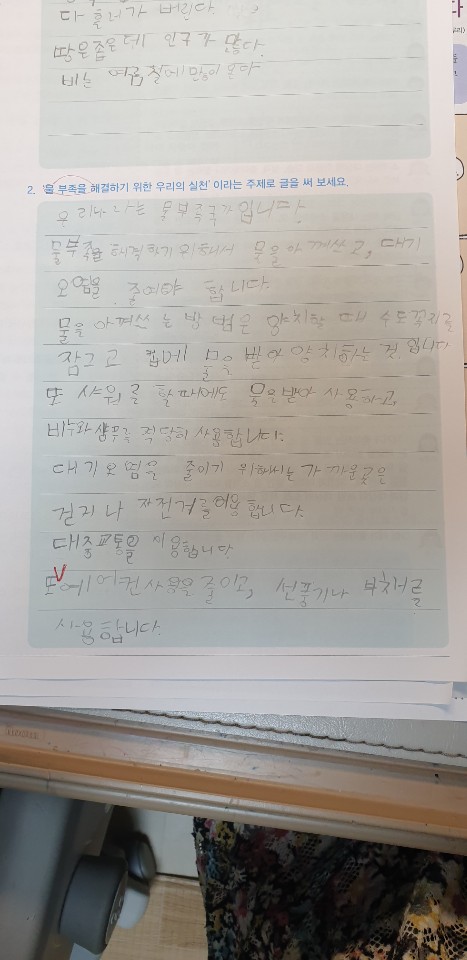 다 흘러가 버린다.
땅은좁은데 인구가 많다.
비는 여름철에 많이 온다
2. '물 부족을 해결하기 위한 우리의 실천' 이라는 주제로 글을 써 보세요.
우리나라는 물부족국가입니다.
물부족을 해결하기 위해서 물을 아껴쓰고, 대기
오염을 줄여야 합니다.
물을 아껴쓰는 방법은 양치할 때 수도꼭지를
잠그고 컵에 물을 받아 양치하는 것 입니다
또 샤워를 할때에도 물을받아 사용하고,
비누와샴푸를 적당히 사용합니다.
대기오염을 줄이기 위해서는 가까운곳은
걷거나 자전거를이용합니다.
대중교통을 이용합니다
또에어컨사용을줄이고, 선풍기나 부채를
사용합니다.